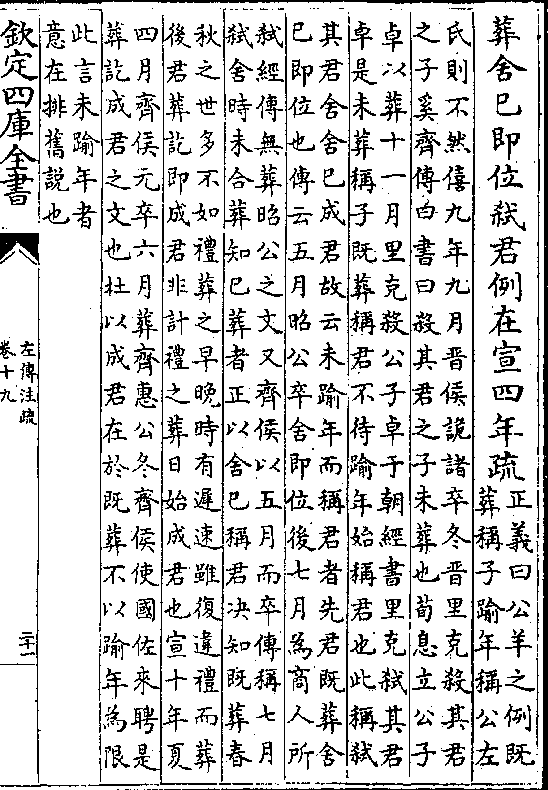 葬舍已即位弑君例在宣四年疏正義曰公羊之例既
葬稱子踰年稱公左
氏則不然僖九年九月晉侯詭諸卒冬晉里克殺其君
之子奚齊傳曰書曰殺其君之子未葬也荀息立公子
卓以葬十一月里克殺公子卓于朝經書里克弑其君
卓是未葬稱子既葬稱君不待踰年始稱君也此稱弑
其君舍舍已成君故云未踰年而稱君者先君既葬舍
已即位也傳云五月昭公卒舍即位後七月為商人所
弑經傳無葬昭公之文又齊侯以五月而卒傳稱七月
弑舍時未合葬知已葬者正以舍已稱君决知既葬春
秋之世多不如禮葬之早晚時有遲速雖復違禮而葬
後君葬訖即成君非計禮之葬日始成君也宣十年夏
四月齊侯元卒六月葬齊惠公冬齊侯使國佐來聘是
葬訖成君之文也杜以成君在於既葬不以踰年為限
此言未踰年者
意在排舊說也
欽定四庫全書
左傳注疏
卷十九
二十一